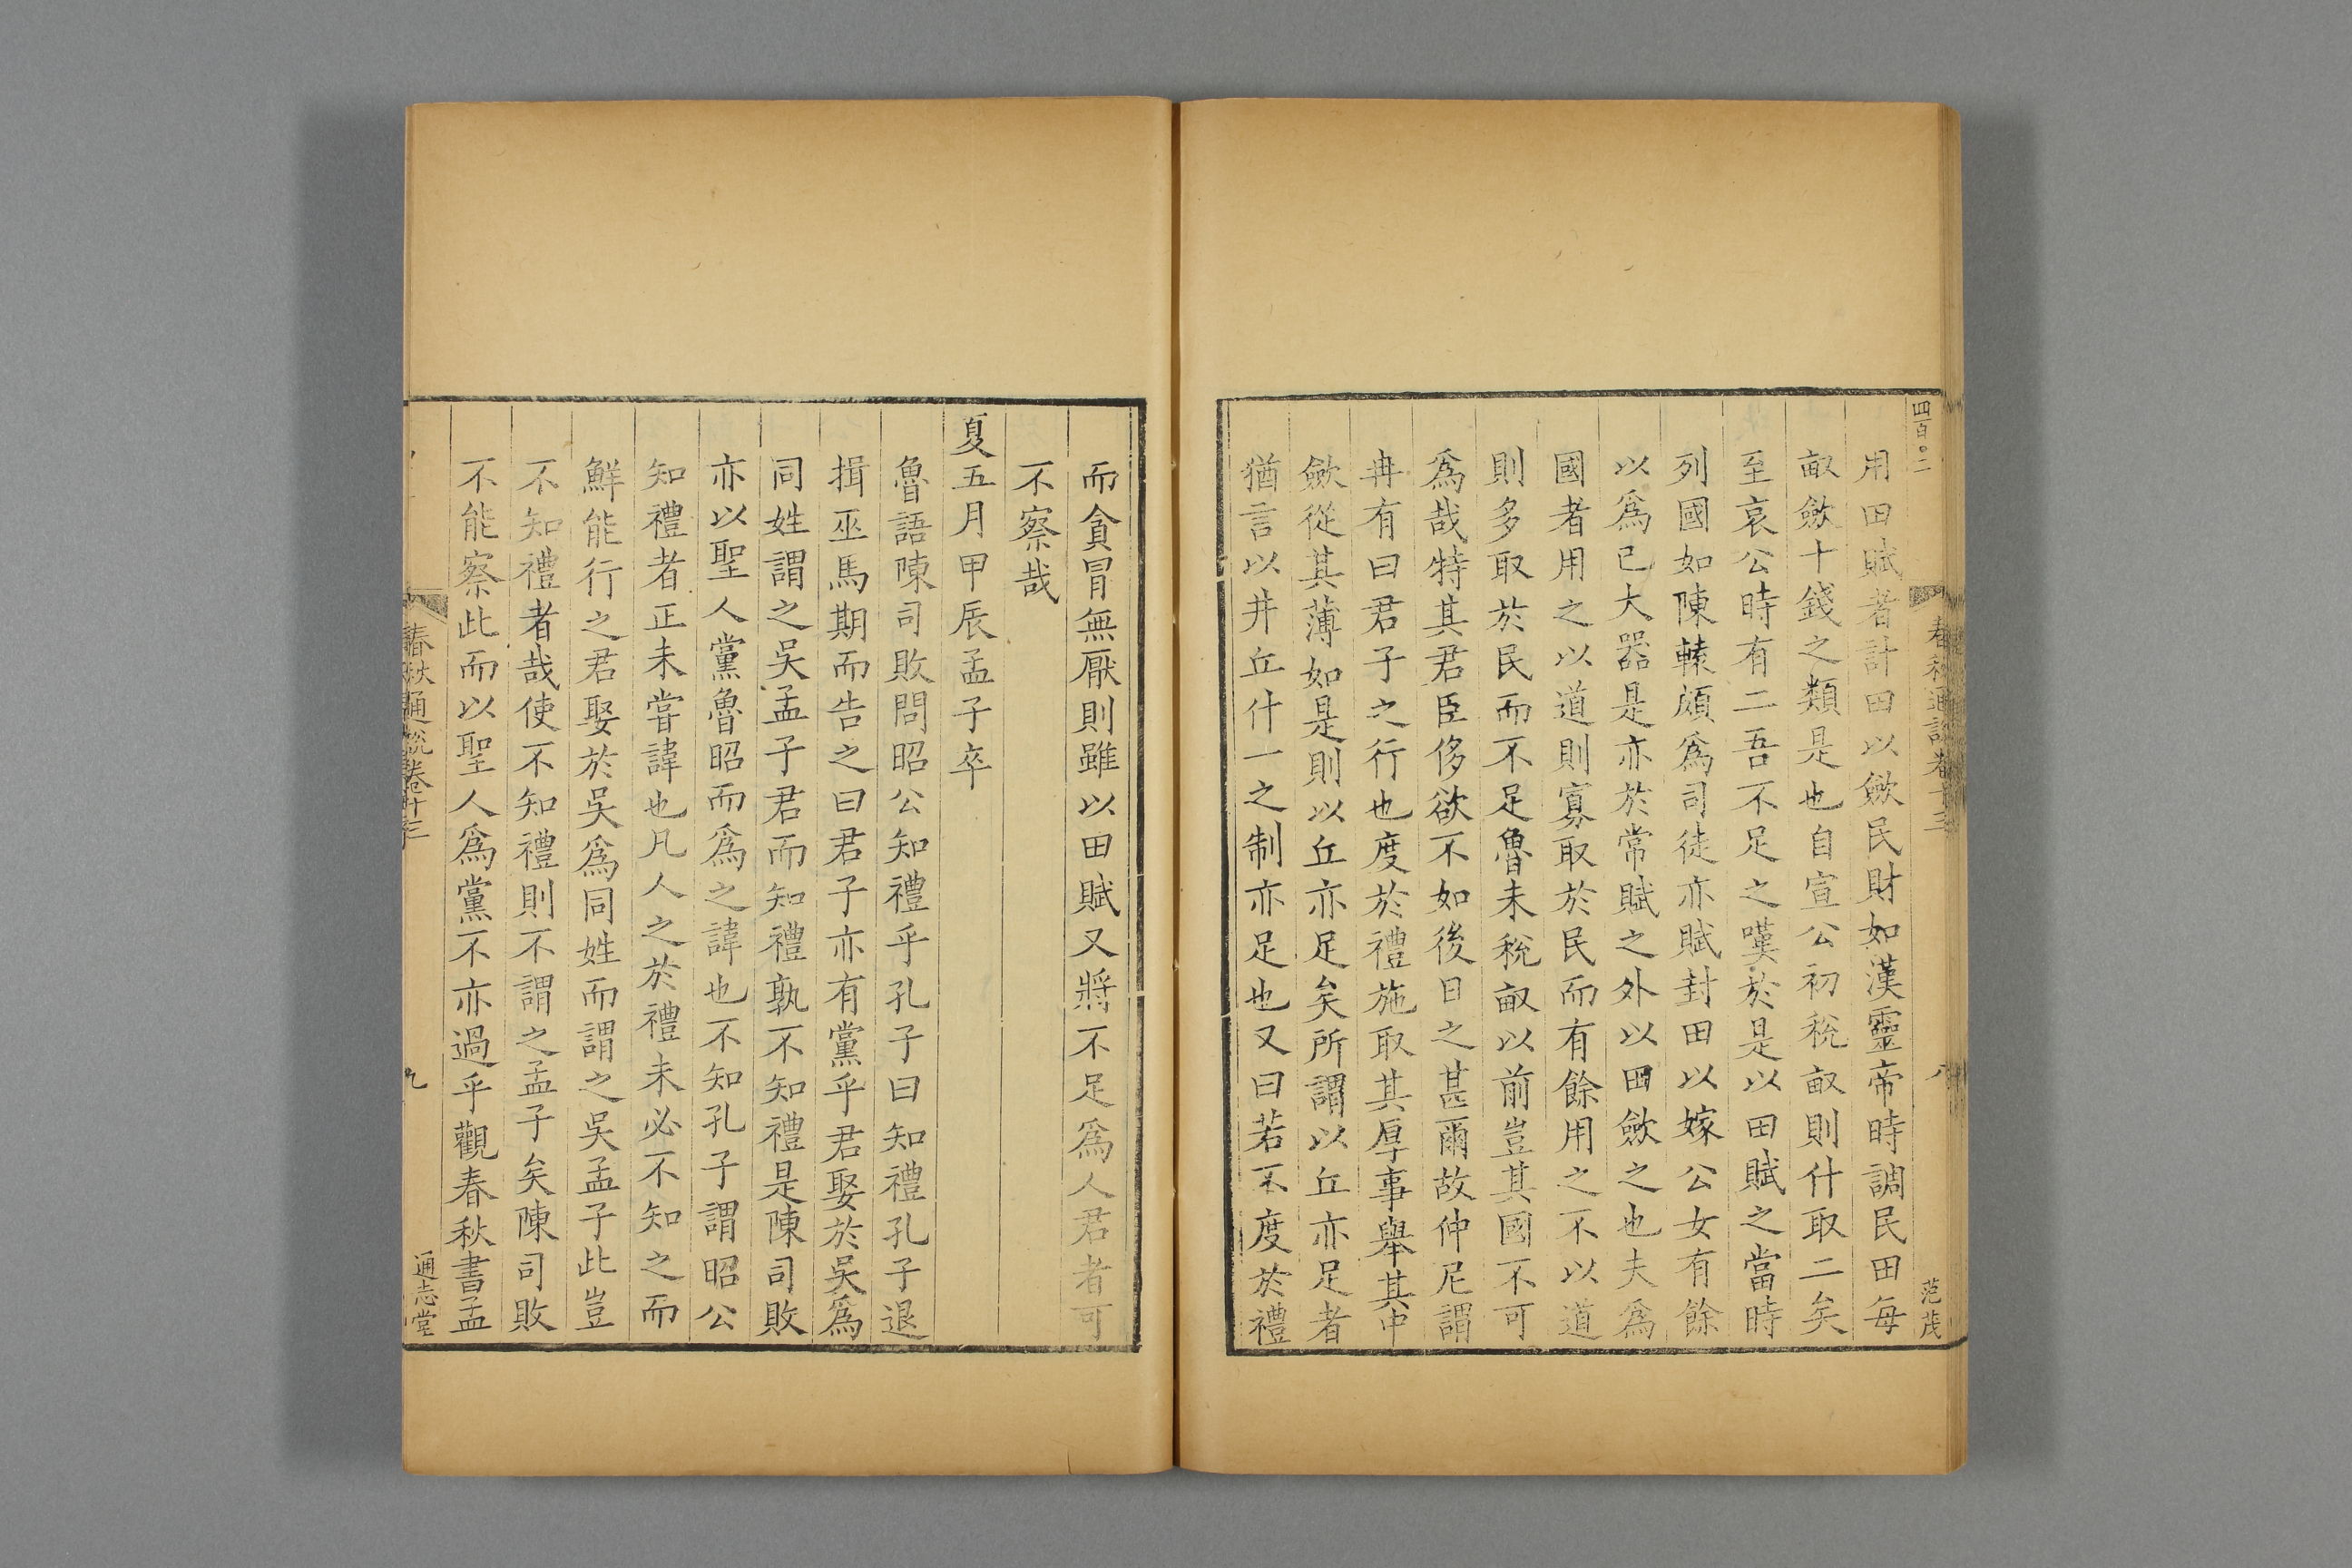 四百〇二
春秋通說卷十三
八
范茂
用田賦者計田以斂民財如漢靈帝時調民田每
畝斂十錢之類是也自宣公初稅畝則什取二矣
至哀公時有二吾不足之嘆於是以田賦之當時
列國如陳轅頗爲司徒亦賦封田以嫁公女有餘
以爲已大器是亦於常賦之外以田斂之也夫爲
國者用之以道則寡取於民而有餘用之不以道
則多取於民而不足魯未稅畝以前豈其國不可
爲哉特其君臣侈欲不如後日之甚爾故仲尼謂
冉有曰君子之行也度於禮施取其厚事舉其中
斂從其薄如是則以丘亦足矣所謂以丘亦足者
猶言以井丘什一之制亦足也又曰若不度於禮
而貪冒無厭則雖以田賦又將不足爲人君者可
不察哉
夏五月甲辰孟子卒
魯語陳司敗問昭公知禮乎孔子曰知禮孔子退
揖巫馬期而告之曰君子亦有黨乎君娶於吳爲
同姓謂之吳孟子君而知禮孰不知禮是陳司敗
亦以聖人黨魯昭而爲之諱也不知孔子謂昭公
知禮者正未嘗諱也凡人之於禮未必不知之而
鮮能行之君娶於吳爲同姓而謂之吳孟子此豈
不知禮者哉使不知禮則不謂之孟子矣陳司敗
不能察此而以聖人爲黨不亦過乎觀春秋書孟
春秋通說卷十三
九
通志堂